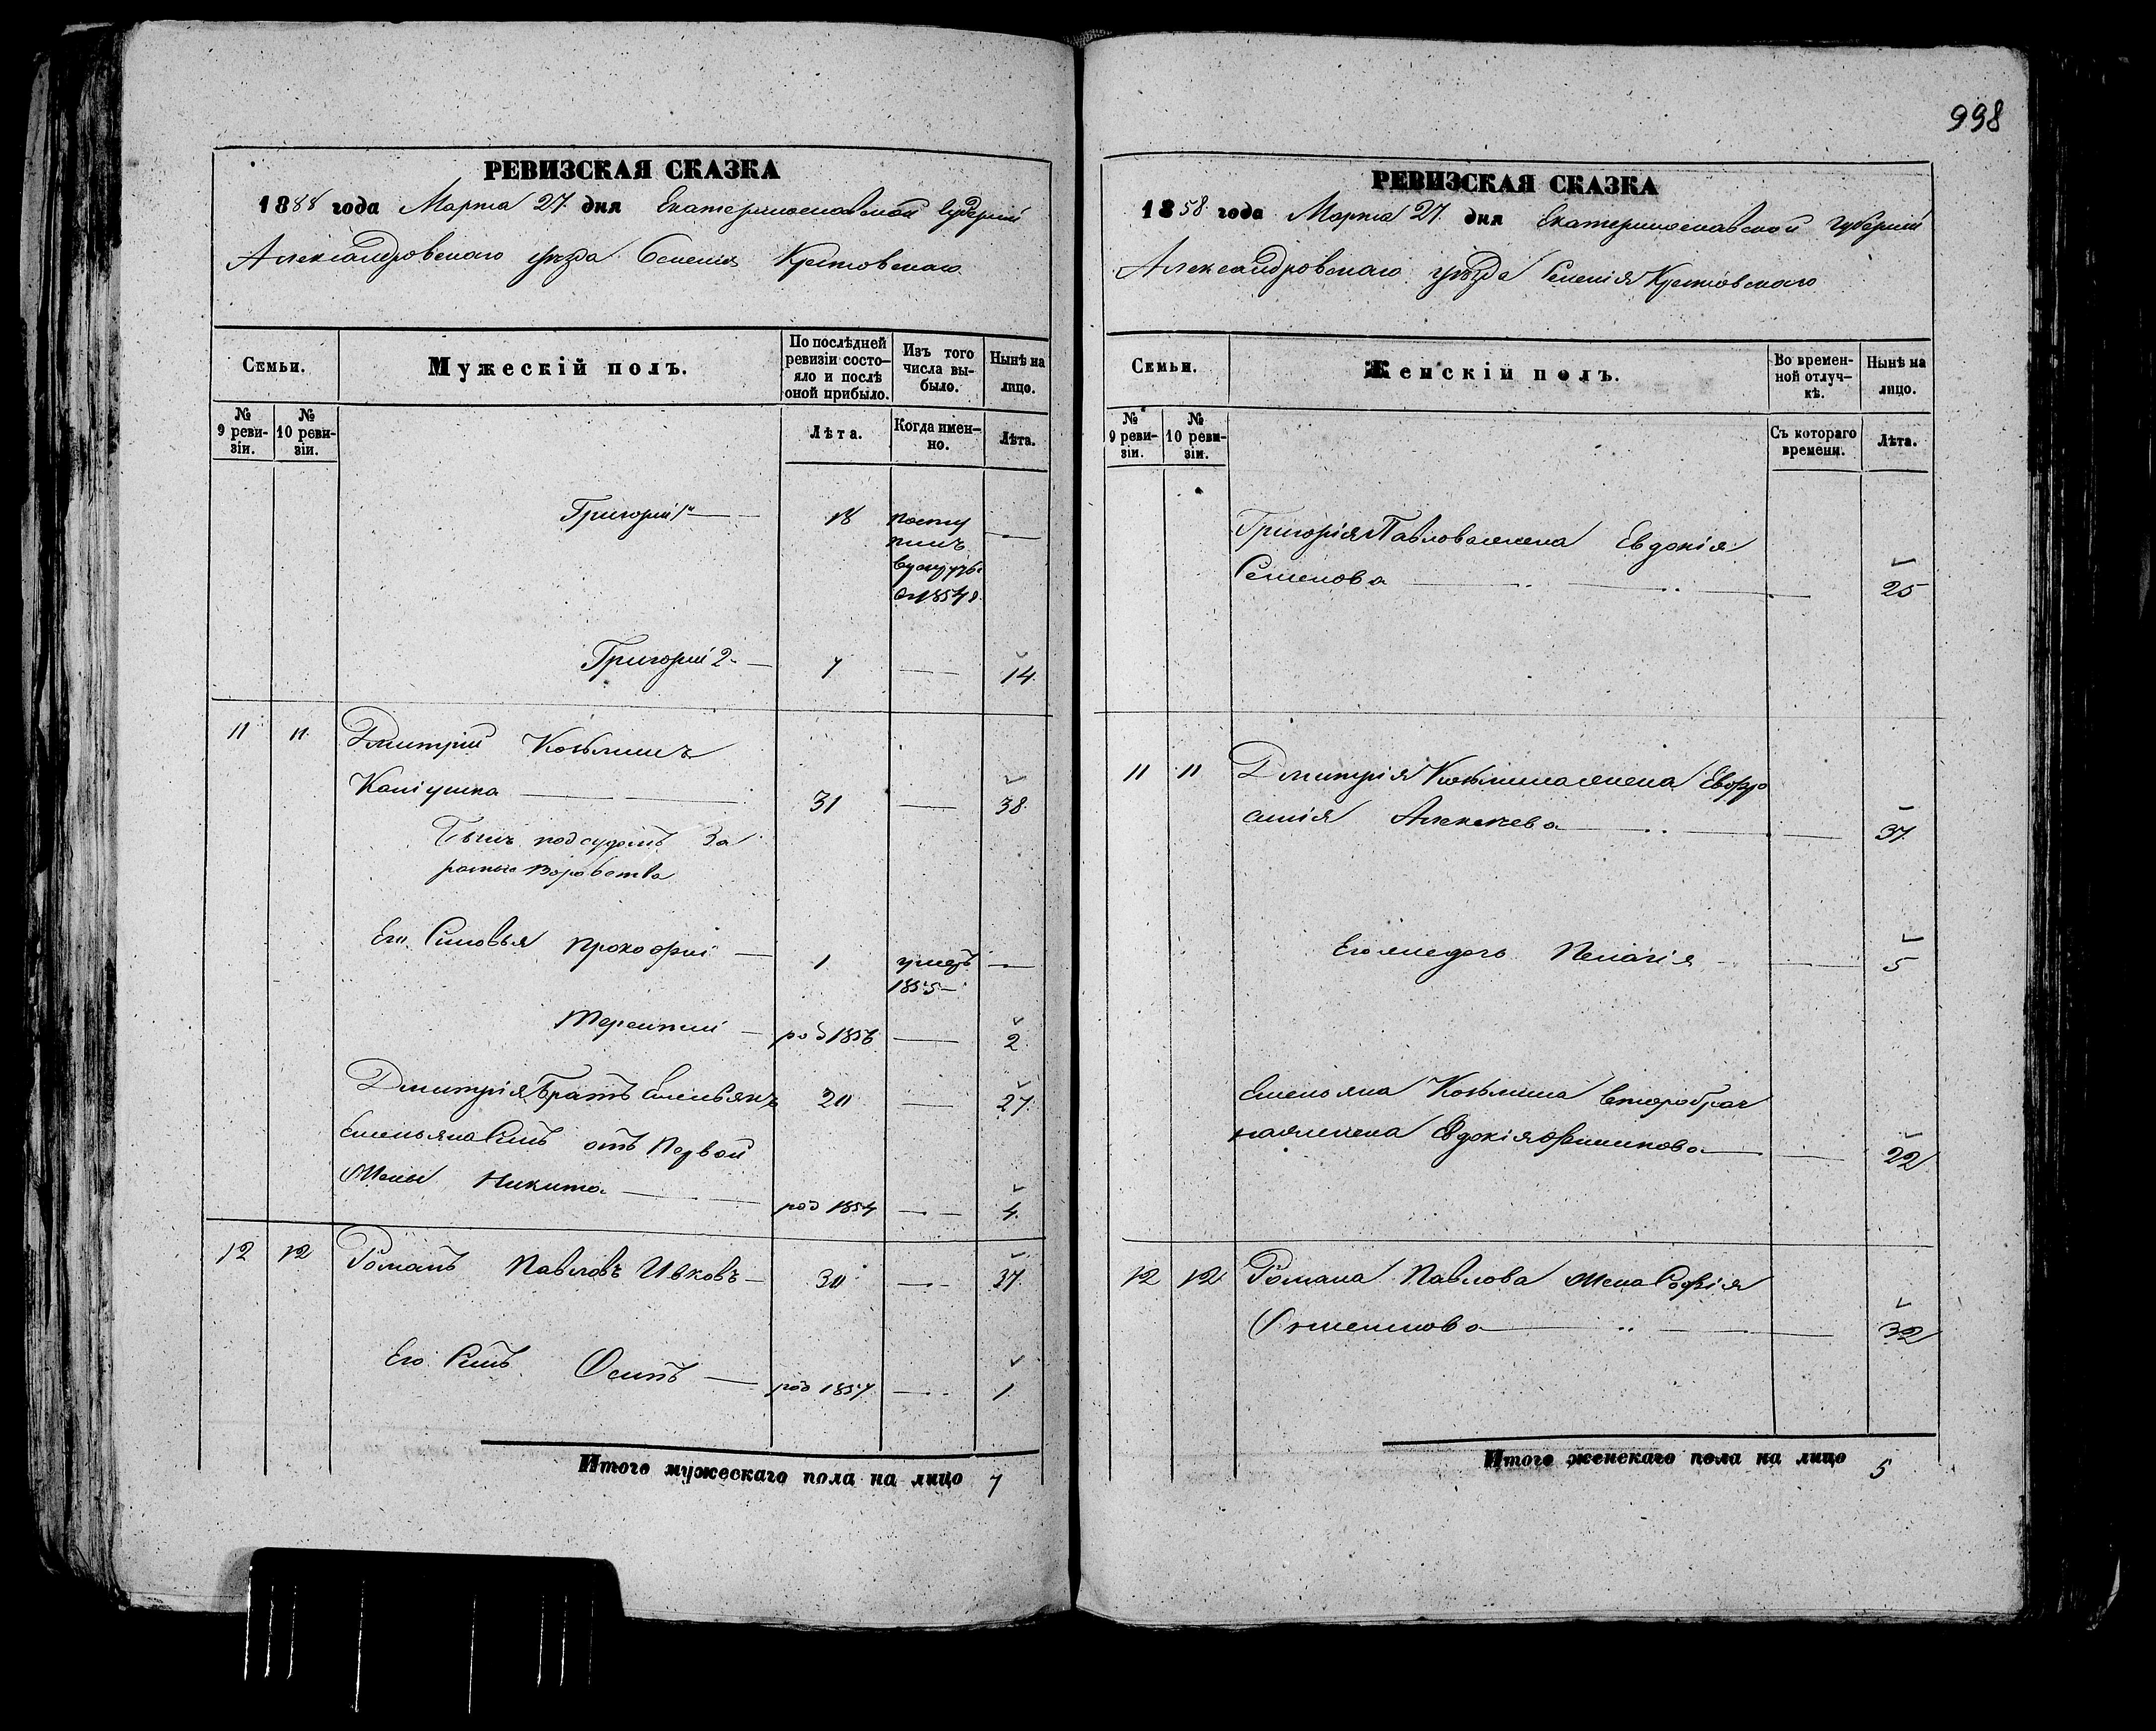 РЕВИЗСКАЯ СКАЗКА
1858 года Марта 27 дня Екатеринославской Губерніи
Александровскаго уѣзда Селенія Крстовскаго
Семьи.
Мужескій полъ.
По послѣдней ревизіи состо-
яло и послѣ
оной прибыло.
Изъ того
числа вы-
было.
Нынѣ на
лицо.
№
9 реви-
зіи.
№
10 реви-
зіи.
Лѣта.
Когда имен-
но.
Лѣта.
Григорій 1й — 18 посту
пилъ
—
в 1854 г.
Григорій 2й — 7 — 14
11 11 Дмитрій Козьминъ
31 — 38
подсудомъ За
разные воровства
Его Сыновья Прокофій — 1 умеръ —
1855
Терентій — род 1856 — 2
Дмитрія Братъ Емельянъ 20 — 27
Емельяна Сынъ отъ Первой
Жены Никита — род 1854 — 4
12 12 Романъ Павловъ Ивковъ — 30 — 37
Его Сынъ Осипъ — род 1857 — 1
Итого мужескаго пола на лицо 7
998
РЕВИЗСКАЯ СКАЗКА
1858 года Марта 27 дня Екатеринославской Губерніи
Александровскаго уѣзда Селенія Крстовскаго
Семьи.
Женскій полъ.
Во времен-
ной отлуч-
кѣ.
Нынѣ на
лицо.
№
9 реви-
зіи.
№
10 реви-
зіи.
Съ котораго
времени.
Лѣта.
Григорія Павлова жена Евдокія
Семенова — 25
11 11 Дмитрія Козьмина жена Евфро
синія Алексѣева — 37
Его же дочь Пелагія — 5
Емельяна Козьмина второбрач
ная жена Евдокія Филипова — 22
12 12 Романа Павлова жена Софія
— 32
Итого женскаго пола на лицо 5